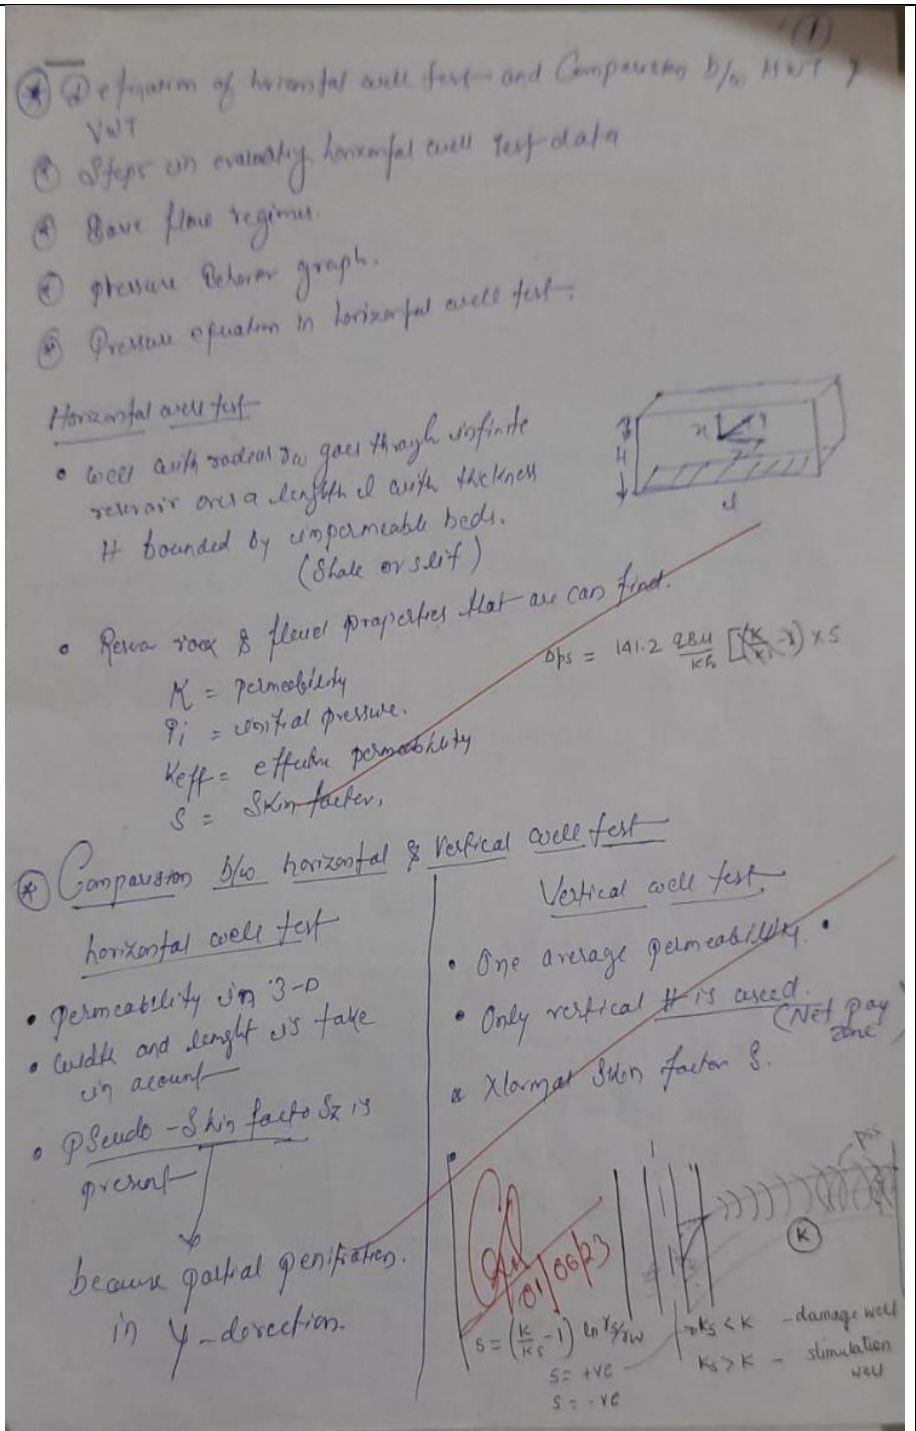 (1)
* Defination of horizontal well test and Comparision b/w HWT &
VWT
* Steps in evaluating horizontal well test data
* Have flow regimes.
* pressure Behavior graph.
* Pressure equation in horizontal well test.
Horizontal well test
• well with radius rw goes through infinite
reservoir over a length l with thickness
H bounded by impermeable beds.
(Shale or silt)
H
x
y
z
l
• Reser rock & fluid properties that we can find.
K = permeability
Pi = initial pressure.
Keff = effective permeability
S = Skin factor.
Δps = 141.2 qBμ/kh [(K/Ks - 1) × S
* Comparision b/w horizontal & Vertical well test
horizontal well test
• permeability in 3-D
• width and lenght is take
in acount
• PSeudo-Skin factor Sz is
present
because partial penitration.
in y-direction.
Vertical well test
• One average permeability.
• Only vertical H is used.
(Net pay
zone)
• Normal Skin factor S.
pss
K
01/06/23
S = (K/Ks - 1) ln rs/rw
S = +ve
S = -ve
Ks < K - damage well
Ks > K - stimulation
well